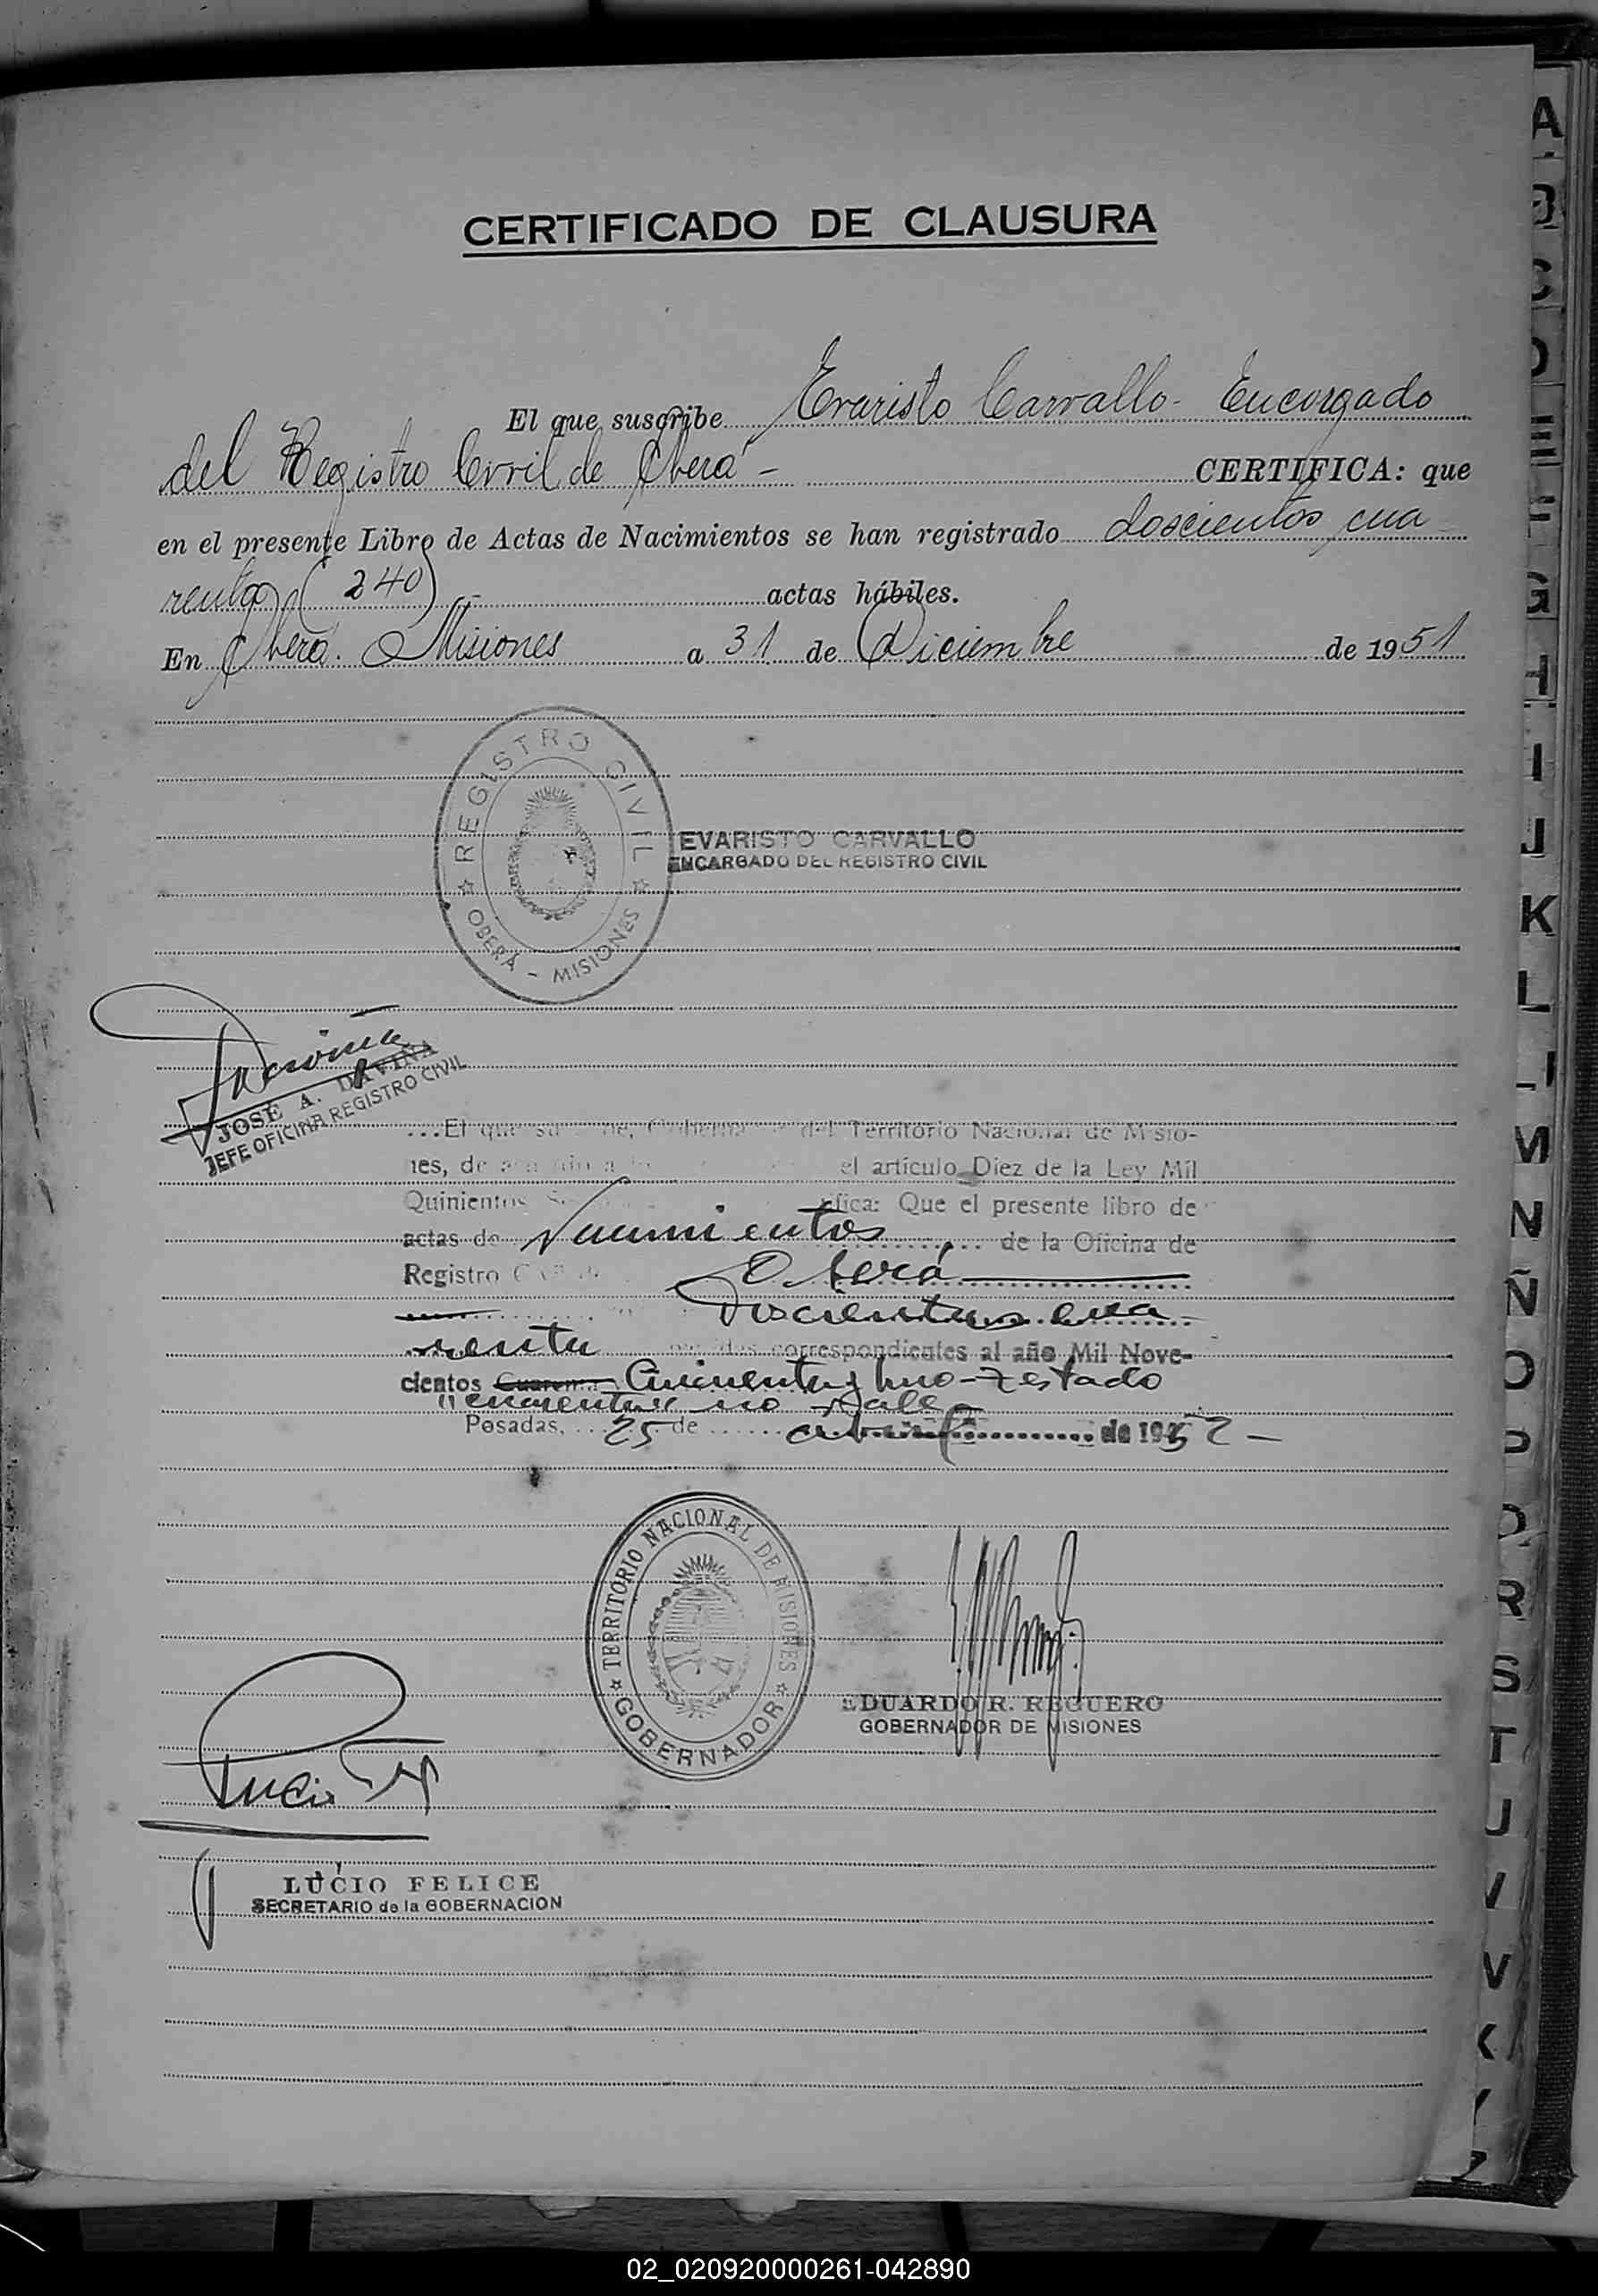 CERTIFICADO DE CLAUSURA
El que suscribe Evaristo Carvallo - Encargado
del Registro Civil de Oberá - CERTIFICA: que
en el presente Libro de Actas de Nacimientos se han registrado doscientos cua
renta (240) - actas hábiles.
En Oberá. Misiones a 31 de Diciembre de 1951
REGISTRO CIVIL
OBERÁ - MISIONES
EVARISTO CARVALLO
ENCARGADO DEL REGISTRO CIVIL
JOSÉ A. DAVIÑA
JEFE OFICINA REGISTRO CIVIL
...El que Territorio Nacional de Misio-
nes, de el artículo Diez de la Ley Mil
Quinientos Que el presente libro de
actas de Nacimientos de la Oficina de
Registro Oberá
Doscientos cua
renta correspondientes al año Mil Nove-
cientos Cuaren Cincuenta y uno - Testado
"cuarenta" no vale
Posadas, 25 de abril de 1952 -
TERRITORIO NACIONAL DE MISIONES
GOBERNADOR
EDUARDO R. REGUERO
GOBERNADOR DE MISIONES
Lucio
LUCIO FELICE
SECRETARIO de la GOBERNACION
A
B
C
D
E
F
G
H
I
J
K
L
LL
M
N
Ñ
O
P
Q
R
S
T
U
V
X
Y
Z
02_020920000261-042890